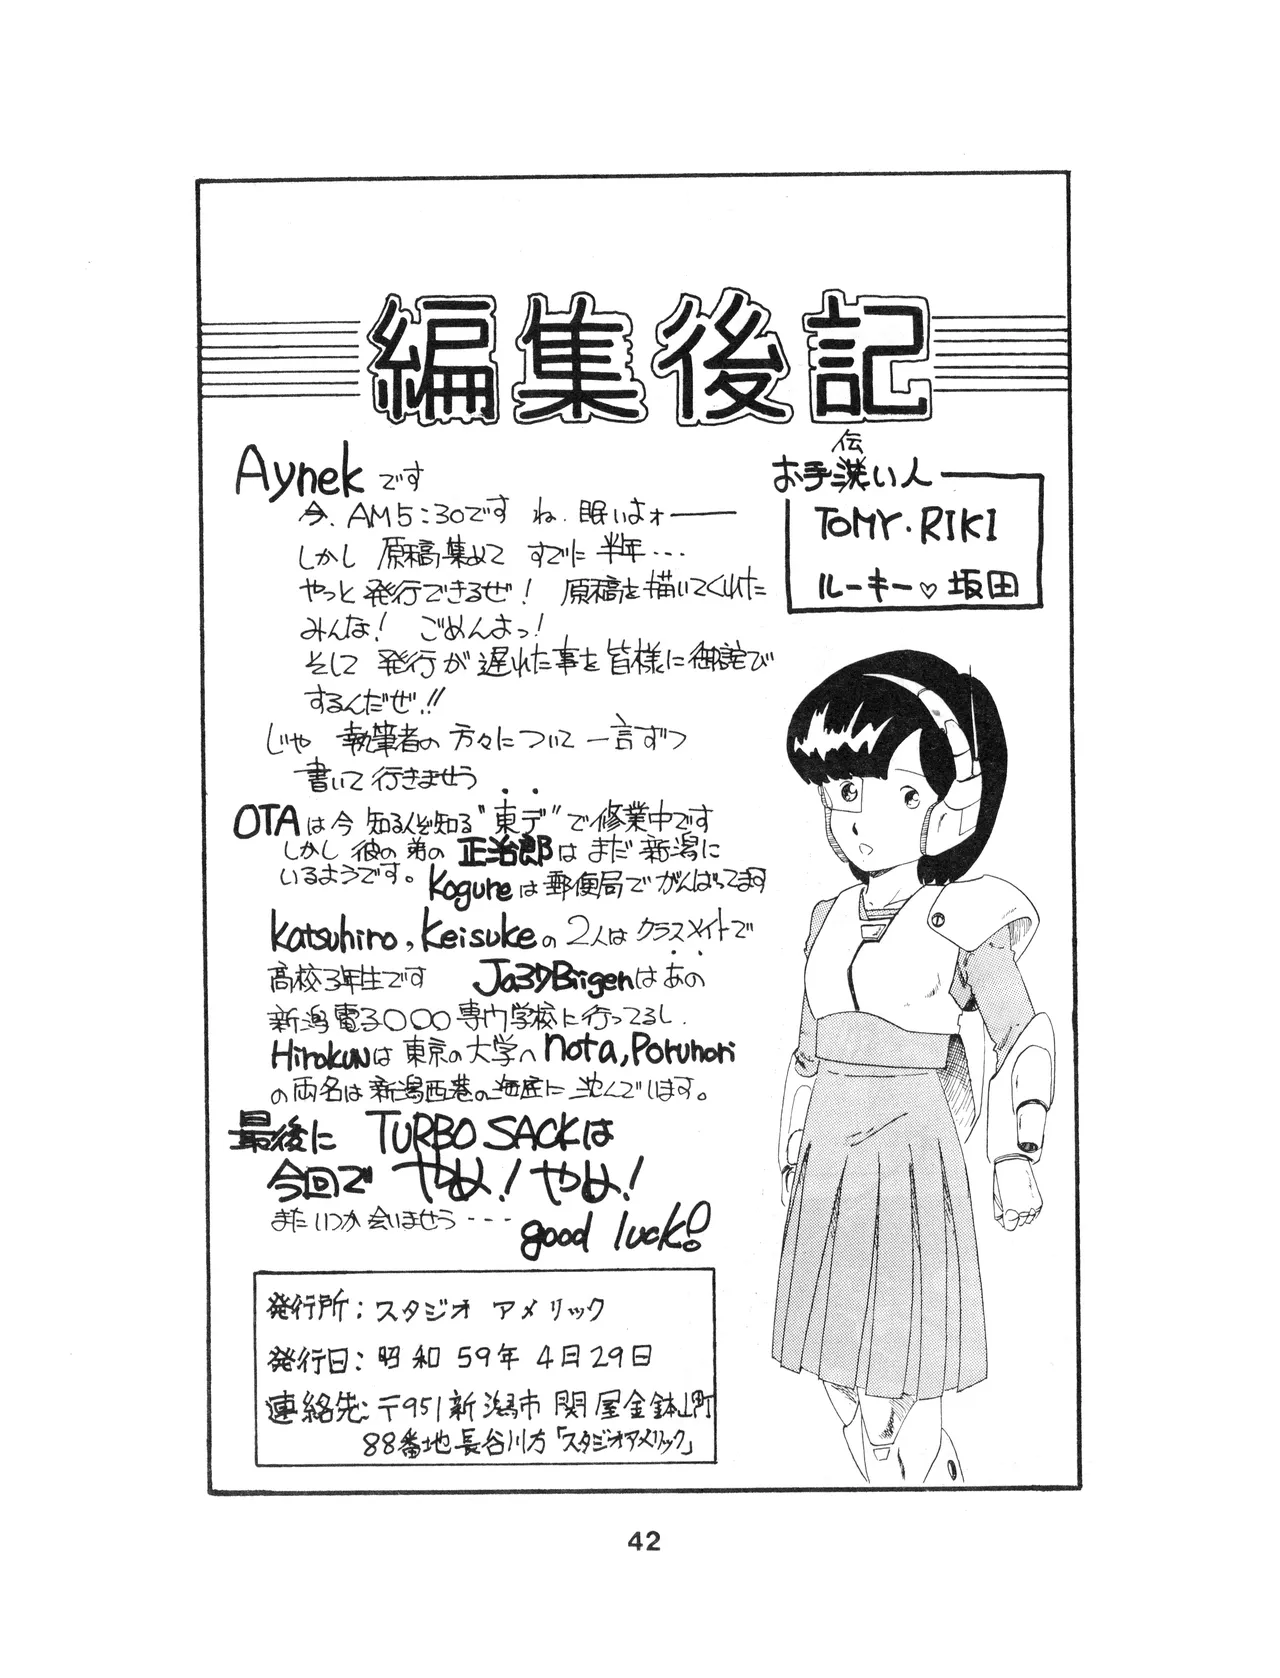 編集後記
Aynekです
今、AM5:30です ね、眠いよォ――
しかし 原稿集めて すでに 半年・・・
やっと発行できるぜ! 原稿を描いてくれた
みんな! ごめんよっ!
そして 発行が遅れた事を皆様に御詫び
するんだぜ!!
じゃ 執筆者の方々について一言ずつ
書いて行きませう
OTAは今 知る人ぞ知る"東デ"で修業中です
しかし 彼の弟の 正治郎は まだ新潟に
いるようです。 Kogureは郵便局でがんばってます
Katsuhiro, Keisukeの2人は クラスメイトで
高校3年生です Ja3ク Biigenはあの
新潟電子○○○専門学校に行ってるし、
Hirokunは東京の大学へ nota, Porunori
の両名は新潟西港の海底に沈んでいます。
最後に TURBO SACKは
今回で やめ!やめ!
また いつか 会いませう・・・
good luck!
お手洗い人
伝
TOMY・RIKI
ルーキー♡坂田
発行所:スタジオ アメリック
発行日:昭和59年4月29日
連絡先:〒951 新潟市 関屋金鉢山町
88番地長谷川方「スタジオアメリック」
42